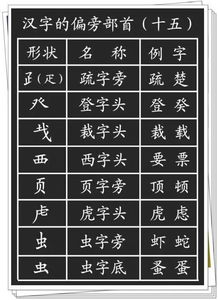 汉字的偏旁部首（十五）
形状 名称 例字
𤴔(疋) 疏字旁 疏 楚
癶 登字头 登 癸
𢦏 栽字头 栽 载
覀 西字头 要 票
页 页字旁 顶 顿
虍 虎字头 虎 虑
虫 虫字旁 虾 蛇
虫 虫字底 蚤 蛋